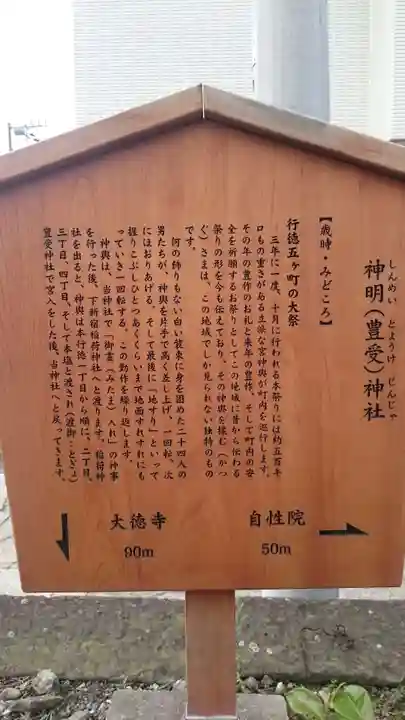 【歳時・みどころ】
しんめい とようけ じんじゃ
神明(豊受)神社
行徳五ヶ町の大祭
三年に一度、十月に行われる本祭りには約五百キ
ロもの重さがある立派な宮神輿が町内を巡行します。
その年の豊作のお礼と来年の豊作、そして町内の安
全を祈願するお祭りとしてこの地域に昔から伝わる
祭りの形を今も伝えており、その神輿を揉む(かつ
ぐ)さまは、この地域でしか見られない独特のもの
です。
何の飾りもない白い装束に身を固めた二十四人の
男たちが、神輿を片手で高く差し上げ、一回転。次
にほおりあげる、そして最後に「地すり」といって
握りこぶしひとつあくくらいまで地面すれすれにも
っていき一回転する。この動作を繰り返します。
神輿は、当神社で「御霊(みたま)入れ」の神事
を行った後、下新宿稲荷神社へと渡ります。稲荷神
社を出ると、神輿は本行徳一丁目から順に、二丁目、
三丁目、四丁目、そして本塩と渡され(渡御:とぎょ)
豊受神社で宮入をした後、当神社へと戻ってきます。
自性院
50m
大徳寺
90m